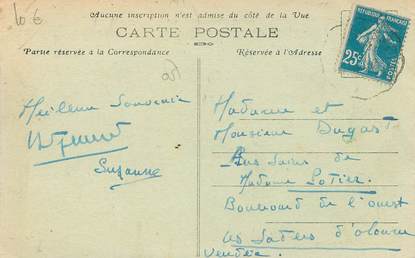 10 €
Aucune inscription n'est admise du côté de la Vue
CARTE POSTALE
Partie réservée à la Correspondance
Réservée à l'Adresse
REPUBLIQUE FRANÇAISE
25c
POSTES
Meilleur Souvenir
Suzanne
Madame et
Monsieur Dugast
Aux soins de
Madame Lotier
Boulevard de l'ouest
les Sables d'olonne
Vendée.